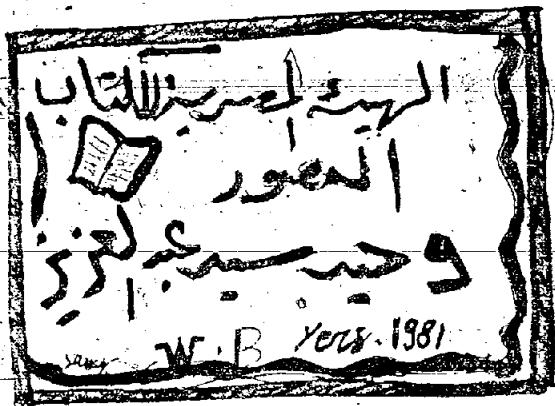 الهيئة المصرية للكتاب
المصور
عبد العزيز
W.B Yers. 1981